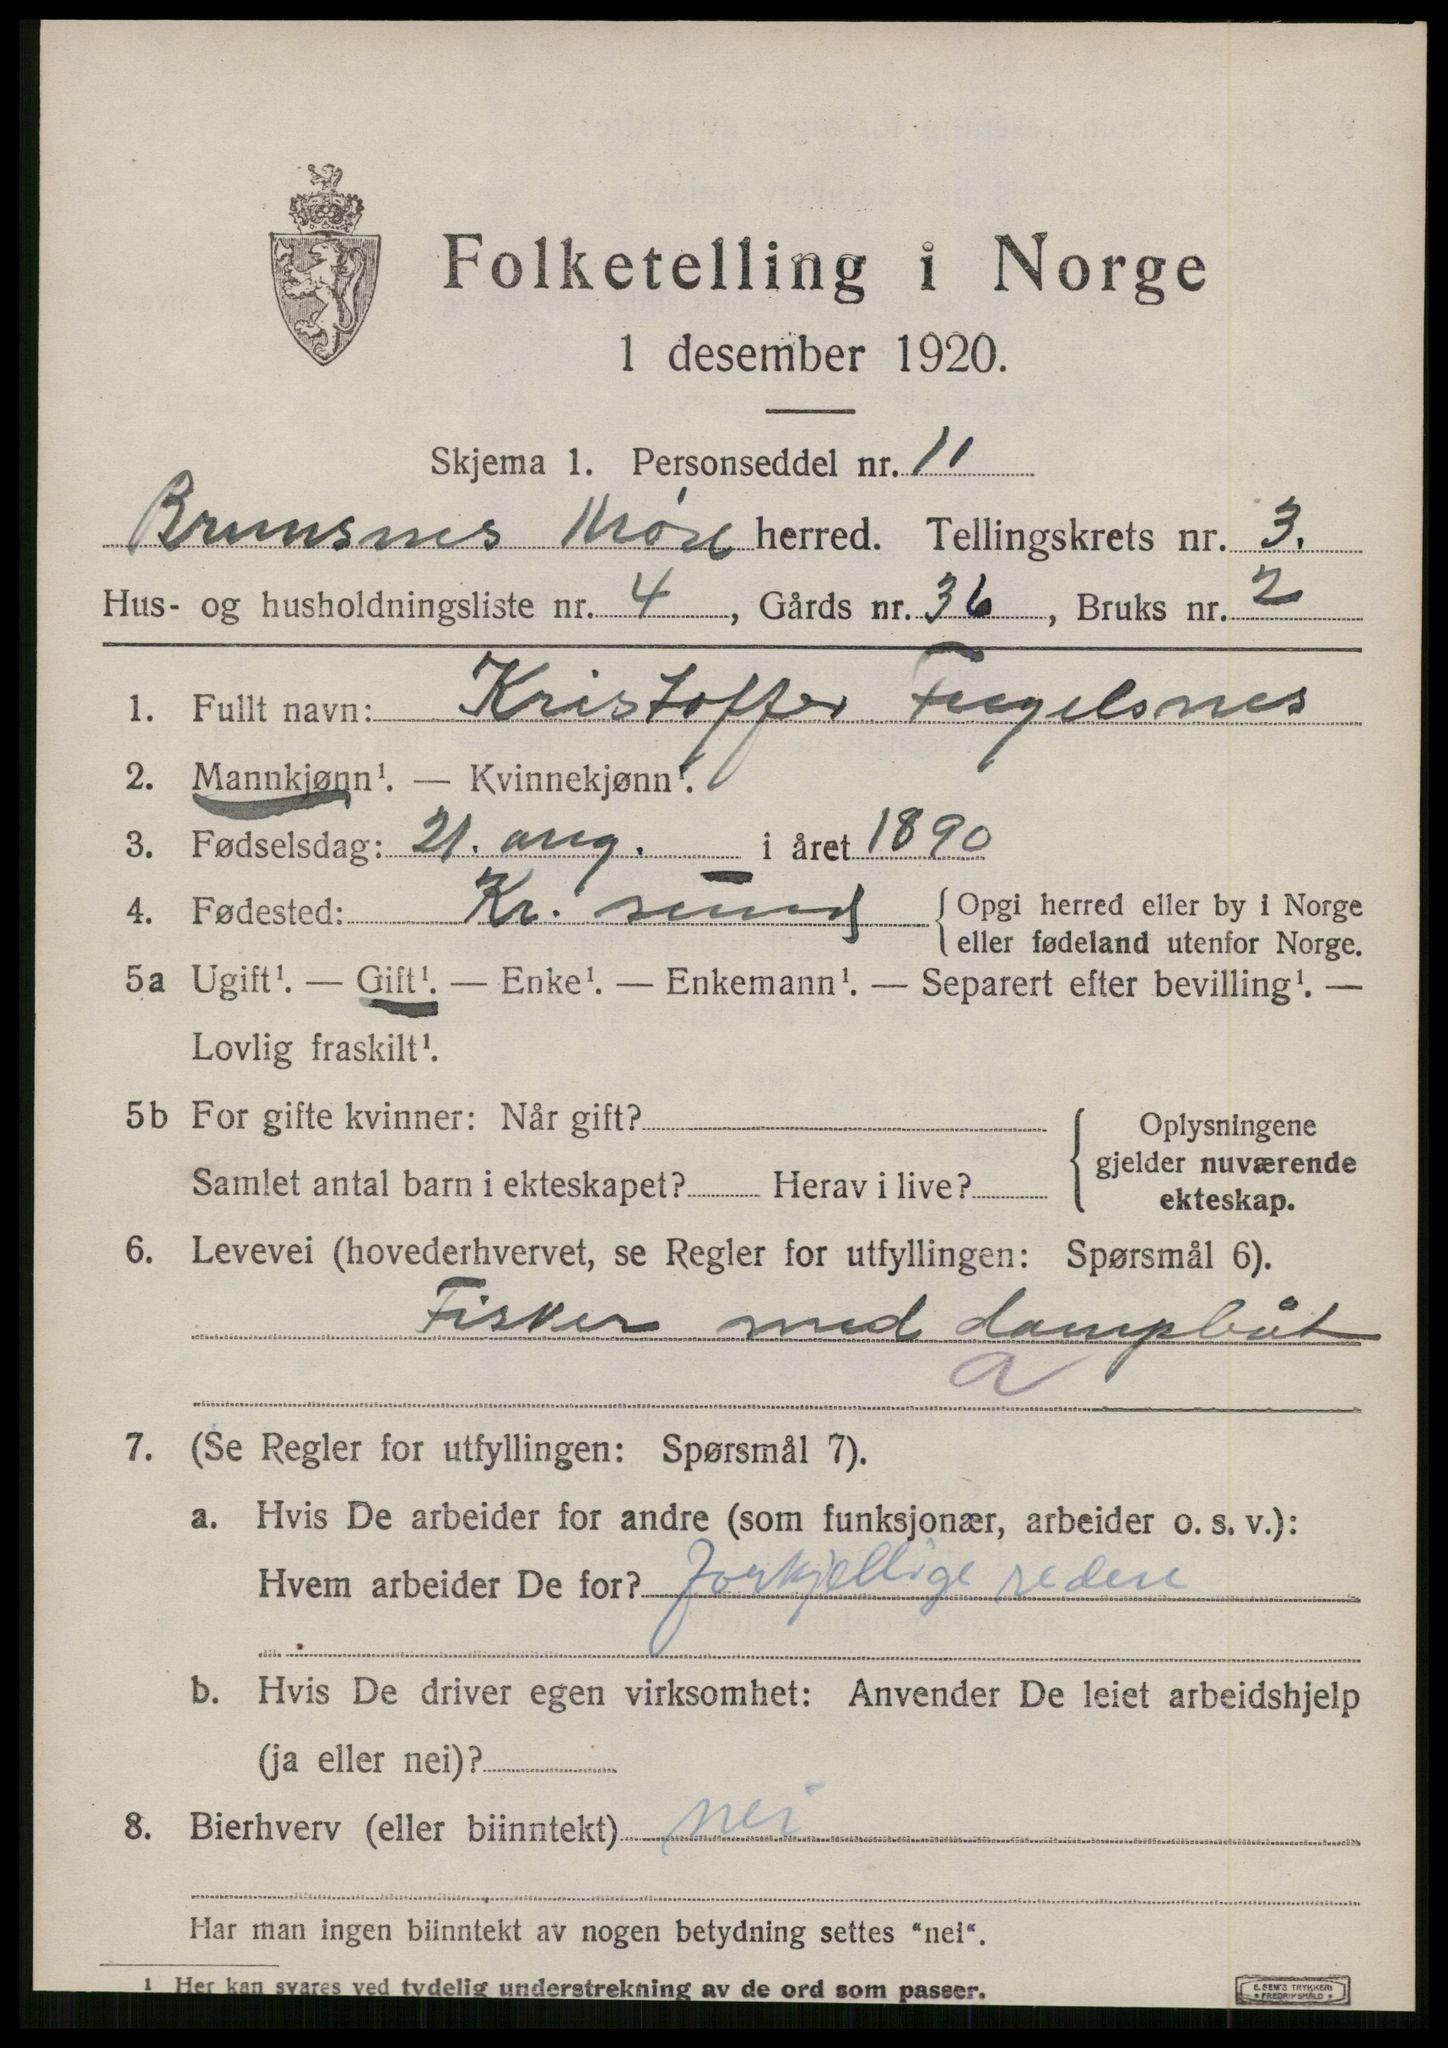 Folketelling i Norge
1 desember 1920.
Skjema 1. Personseddel nr. 11
Bremsnes Møre herred. Tellingskrets nr. 3.
Hus- og husholdningsliste nr. 4, Gårds nr. 36, Bruks nr. 2
1. Fullt navn: Kristoffer Fugelsnes
2. Mannkjønn¹. — Kvinnekjønn¹.
3. Fødselsdag: 21. aug. i året 1890
4. Fødested: Kr. sund { Opgi herred eller by i Norge
eller fødeland utenfor Norge.
5a Ugift¹. — Gift¹. — Enke¹. — Enkemann¹. — Separert efter bevilling¹. —
Lovlig fraskilt¹.
5b For gifte kvinner: Når gift?
Samlet antal barn i ekteskapet? Herav i live?
Oplysningene
gjelder nuværende
ekteskap.
6. Levevei (hovederhvervet, se Regler for utfyllingen: Spørsmål 6).
Fisker med dampbåt
a
7. (Se Regler for utfyllingen: Spørsmål 7).
a. Hvis De arbeider for andre (som funksjonær, arbeider o. s. v.):
Hvem arbeider De for? forkjellige redere
b. Hvis De driver egen virksomhet: Anvender De leiet arbeidshjelp
(ja eller nei)?
8. Bierhverv (eller biinntekt) nei
Har man ingen biinntekt av nogen betydning settes "nei".
1 Her kan svares ved tydelig understrekning av de ord som passer.
E. SEM'S TRYKKERI
FREDRIKSHALD